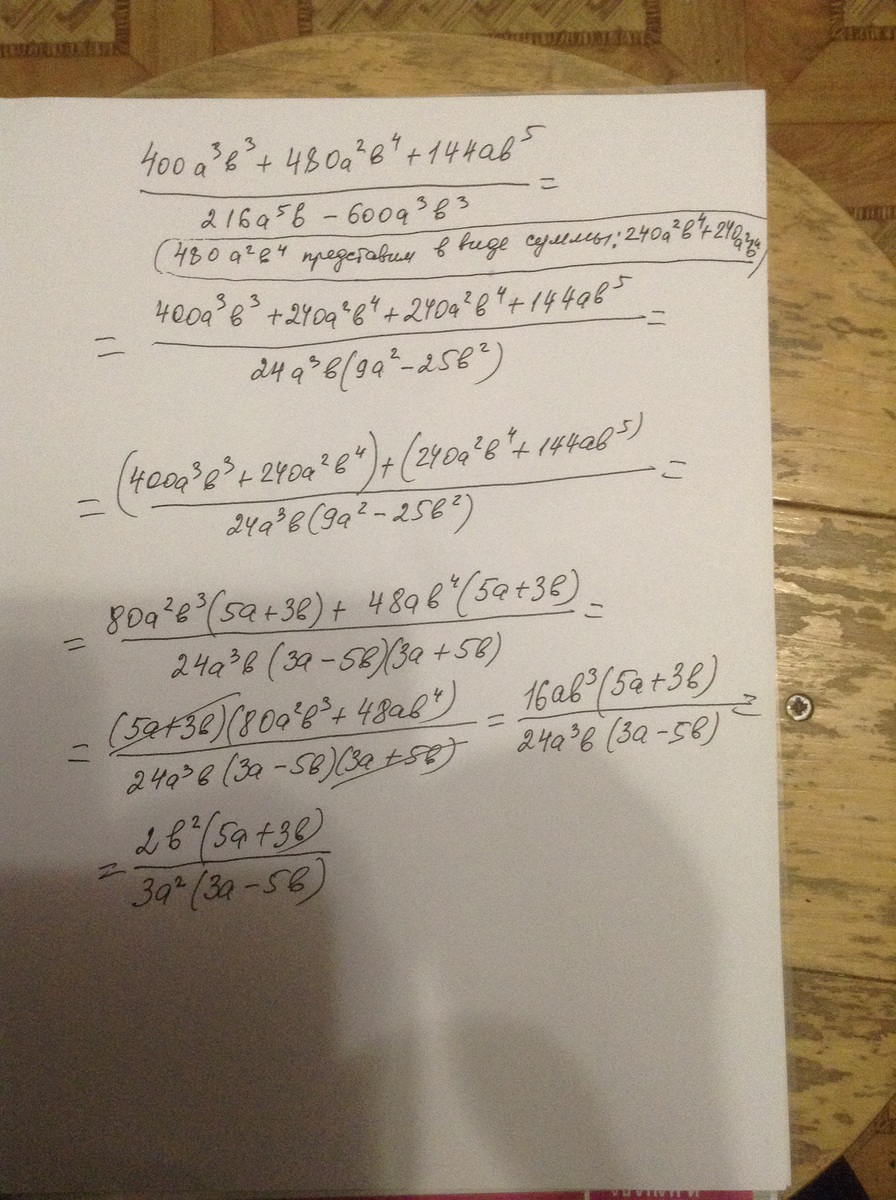 400a³b³ + 480a²b⁴ + 144ab⁵ / 216a⁵b − 600a³b³ =
(480a²b⁴ представим в виде суммы: 240a²b⁴ + 240a²b⁴)
= 400a³b³ + 240a²b⁴ + 240a²b⁴ + 144ab⁵ / 24a³b(9a² − 25b²) =
= (400a³b³ + 240a²b⁴) + (240a²b⁴ + 144ab⁵) / 24a³b(9a² − 25b²) =
= 80a²b³(5a + 3b) + 48ab⁴(5a + 3b) / 24a³b(3a − 5b)(3a + 5b) =
= (5a + 3b)(80a²b³ + 48ab⁴) / 24a³b(3a − 5b)(3a + 5b) = 16ab³(5a + 3b) / 24a³b(3a − 5b) =
= 2b²(5a + 3b) / 3a²(3a − 5b)